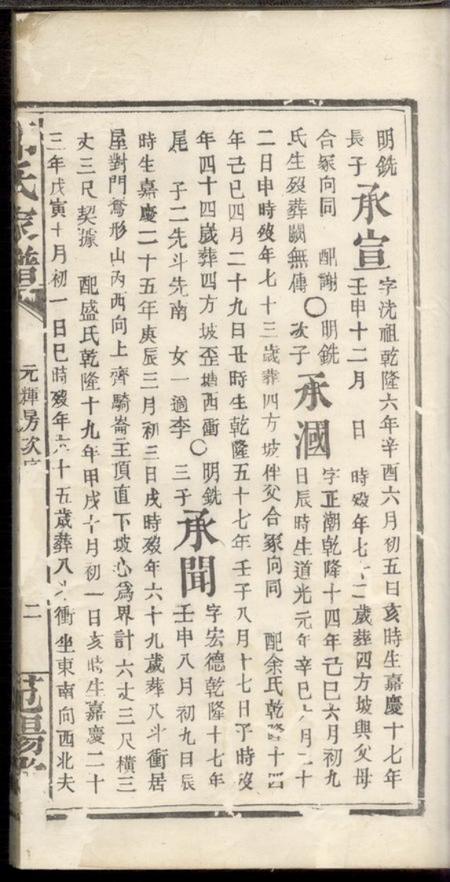 明銑長子
承宣
字洗祖乾隆六年辛酉六月初五日亥時生嘉慶十七年
壬申十二月 日 時歿年七十二歲葬四方坡與父母
合冢向同 配謝
氏生歿葬闕無傳
〇明銑次子
承涸
字正潮乾隆十四年己巳六月初九
日辰時生道光元年辛巳六月二十
二日申時歿年七十三歲葬四方坡伴父合冢向同 配余氏乾隆十四
年己巳四月二十九日丑時生乾隆五十七年壬子八月十七日子時歿
年四十四歲葬四方坡歪塘西衝〇明銑
尾 子二先斗先南 女一適李 三子
承聞
字宏德乾隆十七年
壬申八月初九日辰
時生嘉慶二十五年庚辰三月初三日戌時歿年六十九歲葬八斗衝居
屋對門鴛形山丙西向上齊騎崙王頂直下坡心爲界計六丈三尺橫三
丈三尺契據 配盛氏乾隆十九年甲戌十月初一日亥時生嘉慶二十
三年戊寅十月初一日巳時歿年六十五歲葬八斗衝坐東南向西北夫
氏家譜
元輝房次
二
范陽